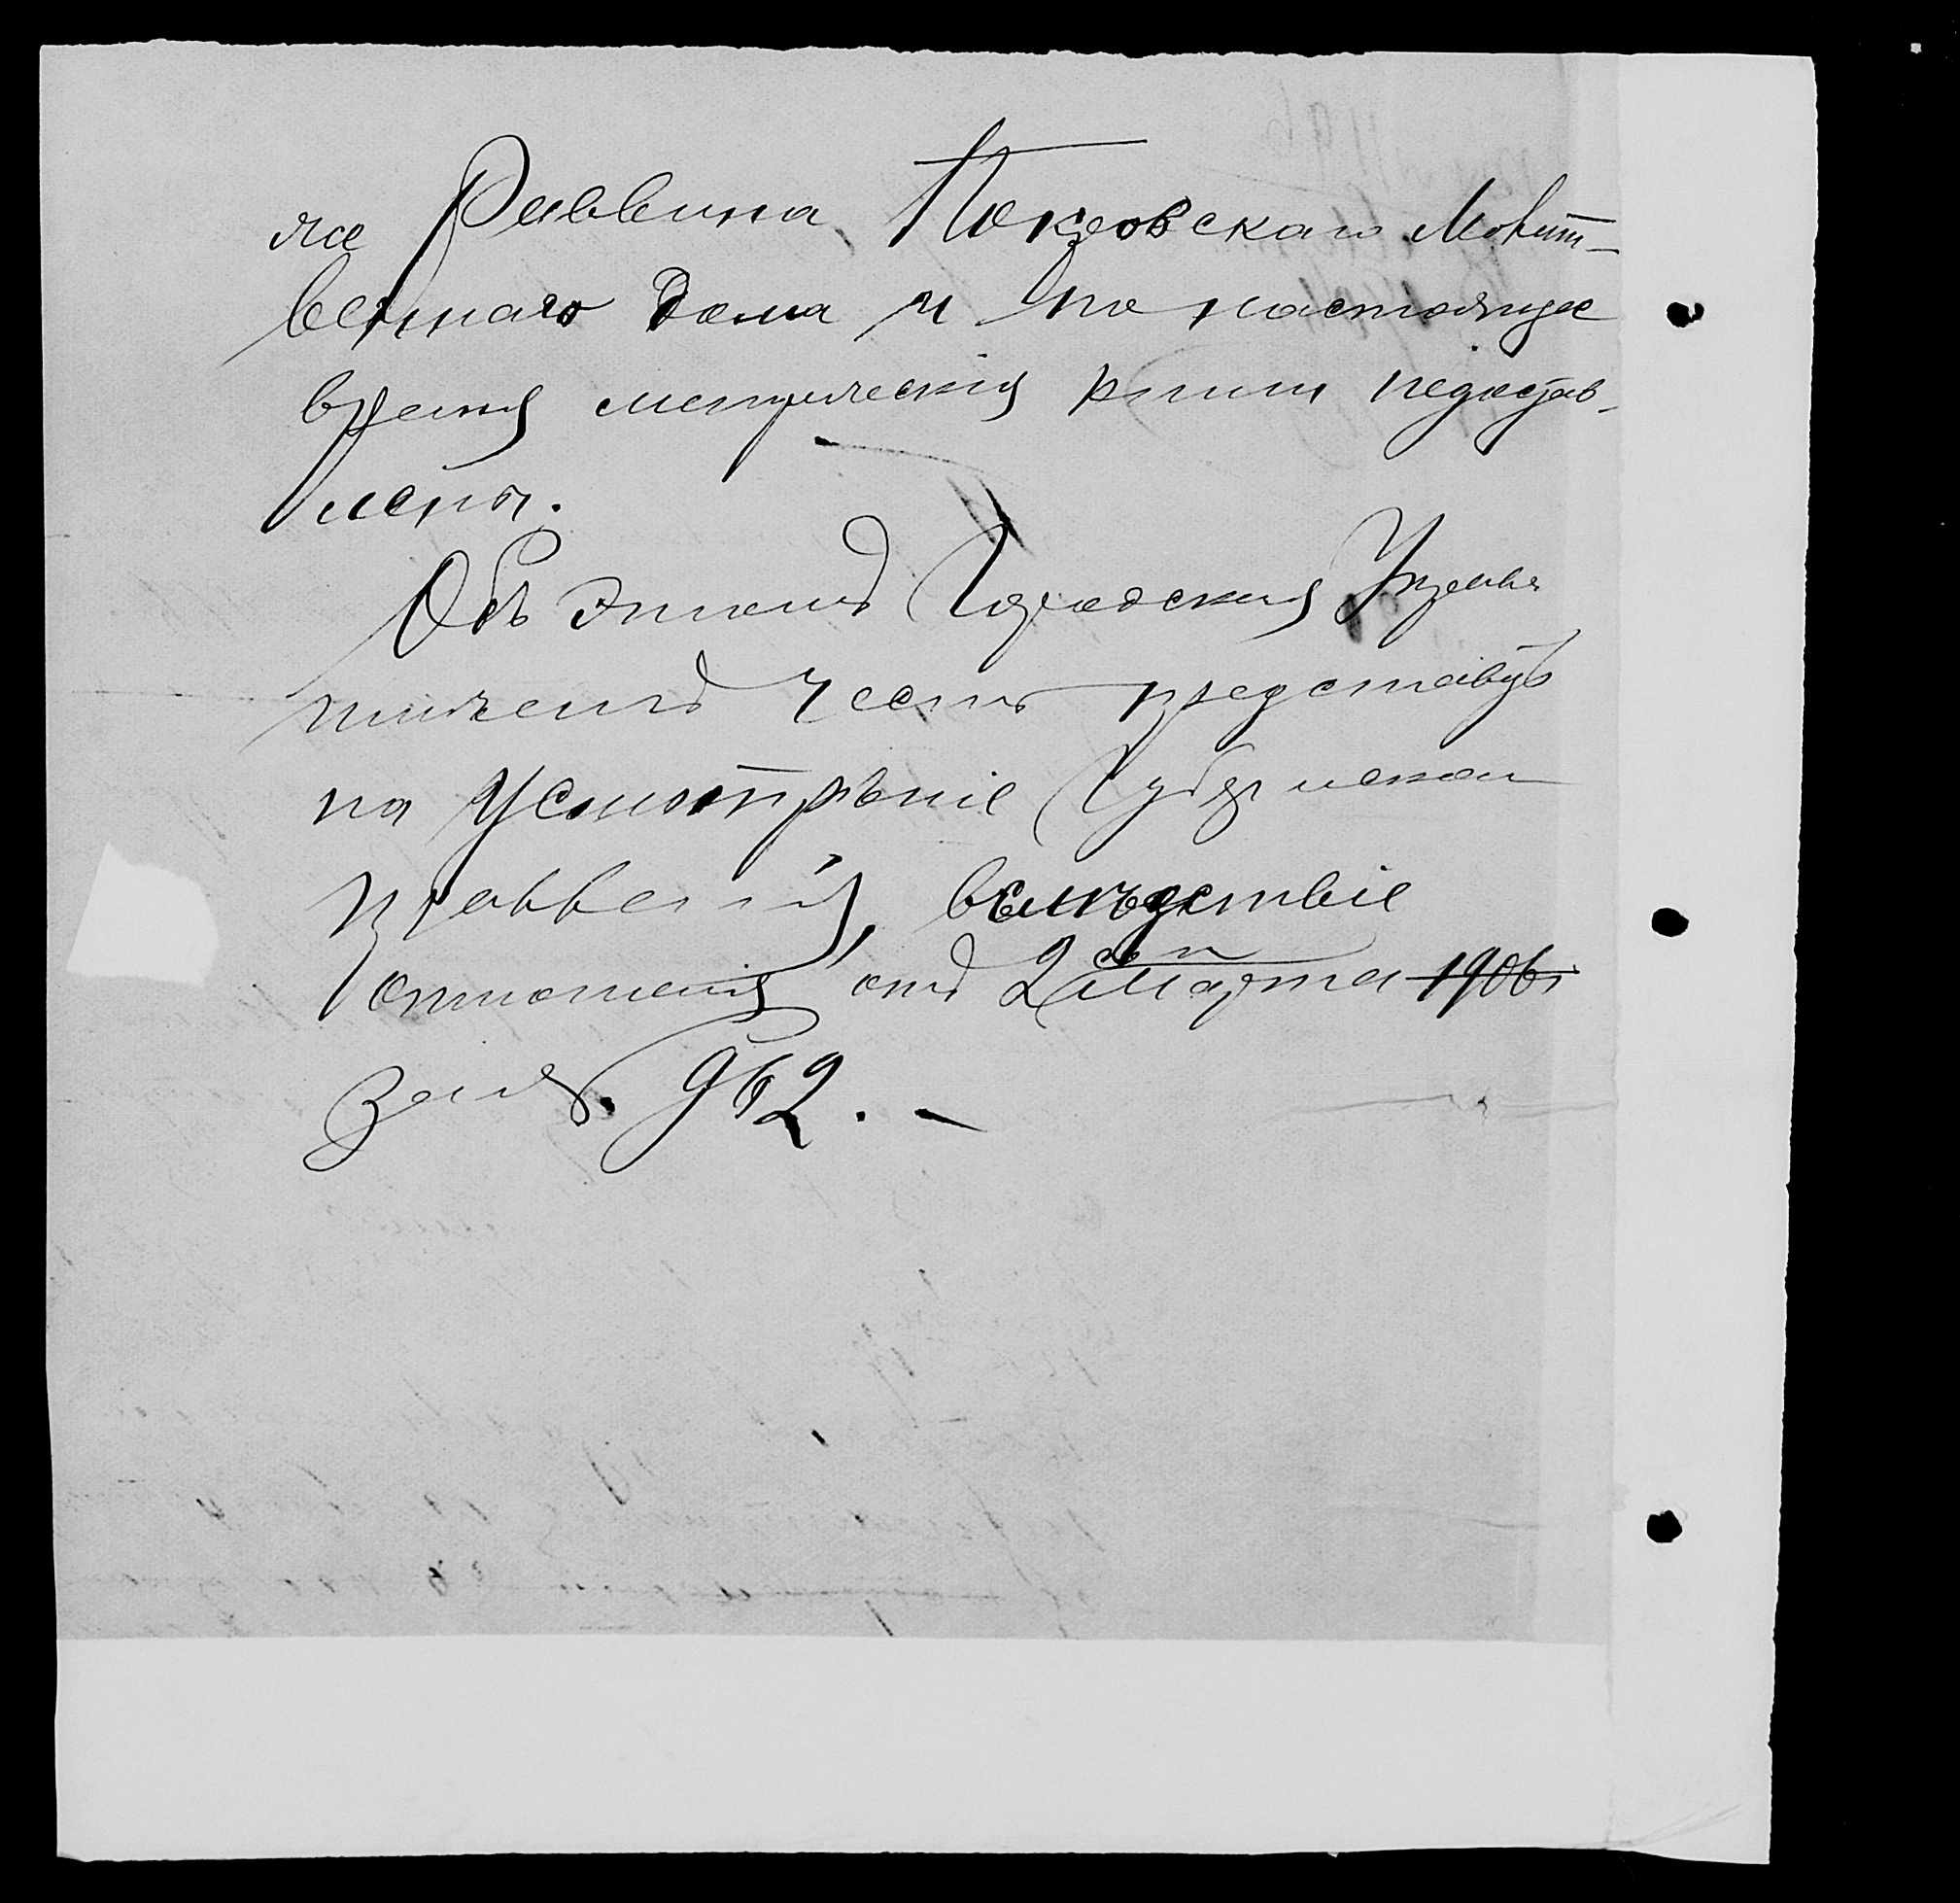 же Раввина, Покровскаго Молит-
веннаго дома и по настоящее
время метрическія книги недостав-
лены.
Объ этомъ Городская Управа
имѣетъ честь представить
на усмотрѣніе Губернскаго
правленія, вслѣдствіе
отношенія отъ 2 Марта 1906 г.
за № 962. —